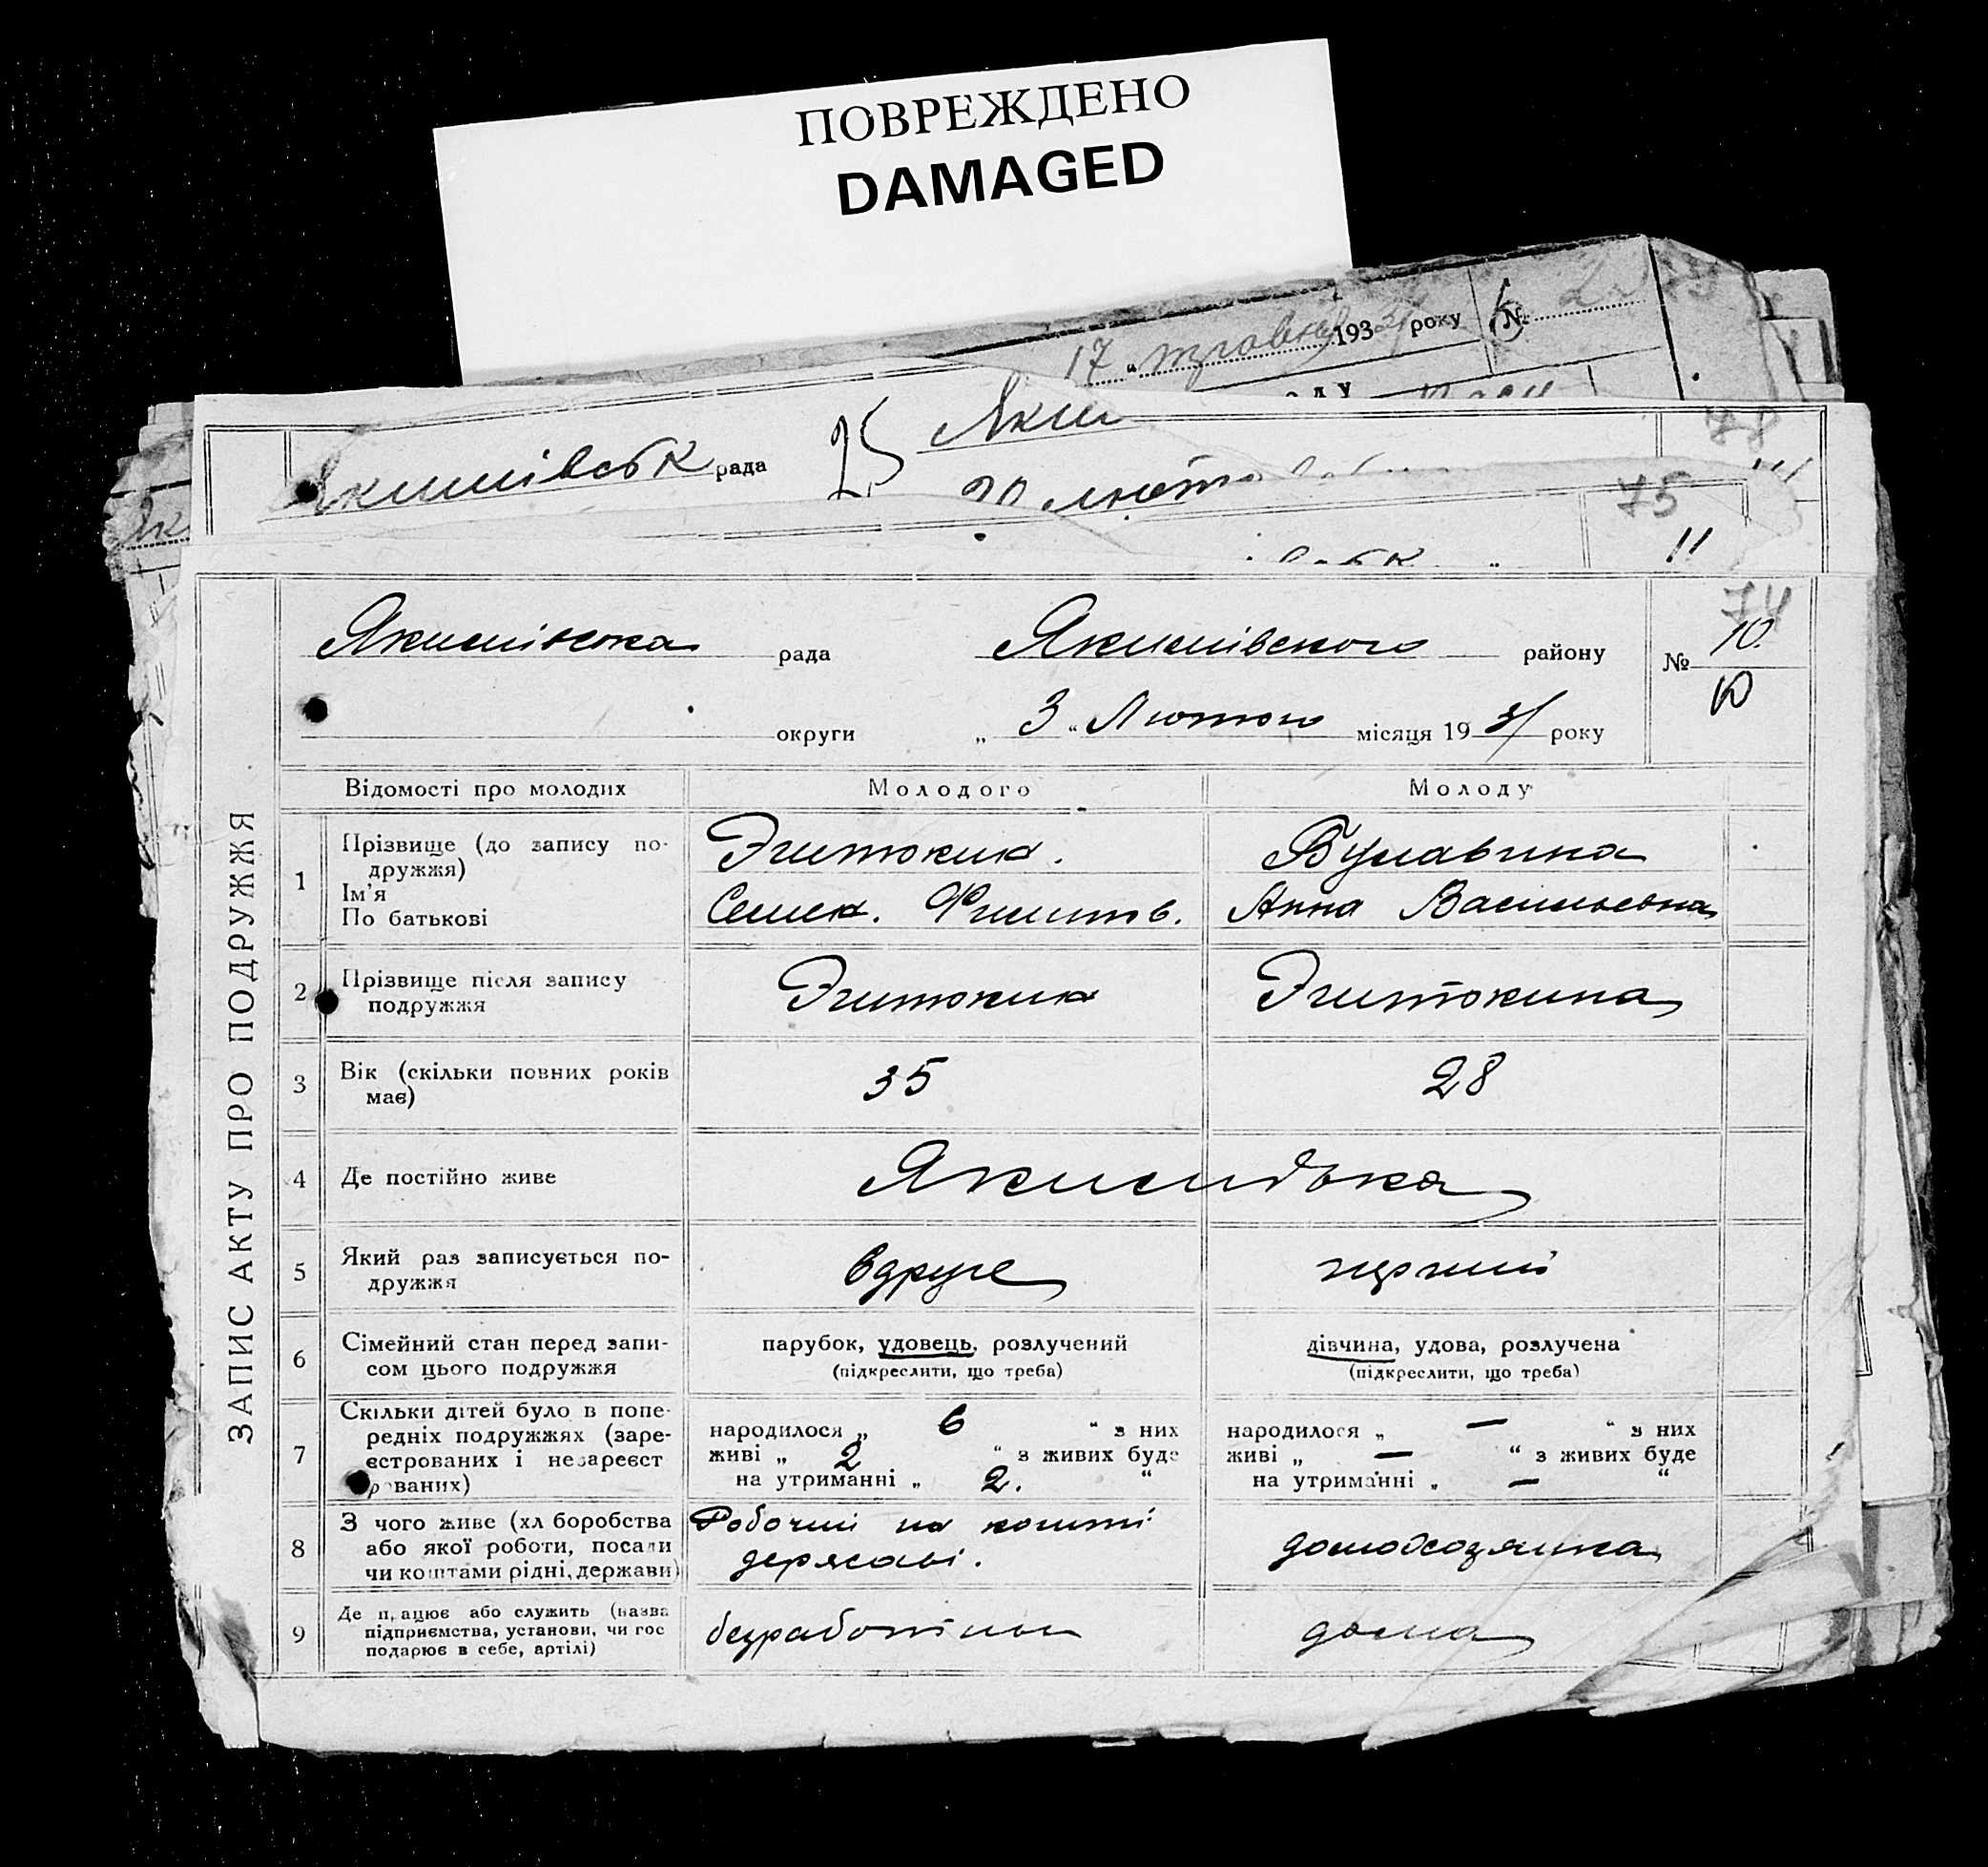 ПОВРЕЖДЕНО
DAMAGED
17 " травня 1931 року №
Якимівськ рада 25 Яким
20 лютого
78
75
11
74
Якимівська рада Якимівского району № 10
10
округи „ 3 " Лютого місяця 1931 року
ЗАПИС АКТУ ПРО ПОДРУЖЖЯ
Відомості про молодих Молодого Молоду
1 Прізвище (до запису по-
дружжя)
Ім'я
По батькові
Булавина
Семен. Филипов. Анна Васильевна
2 Прізвище після запису
подружжя
3 Вік (скільки повних років
має)
35 28
4 Де постійно живе
Якимівка
5 Який раз записується по-
дружжя
вдруге перший
6 Сімейний стан перед запи-
сом цього подружжя
парубок, удовець, розлучений
(підкреслити, що треба)
дівчина, удова, розлучена
(підкреслити, що треба)
7 Скільки дітей було в попе-
редніх подружжях (заре-
єстрованих і незареєст
рованих)
народилося „ 6 " з них
живі „ 2 " з живих буде
на утриманні „ 2. "
народилося „ — " з них
живі „ — " з живих буде
на утриманні „ — "
8 З чого живе (хлiборобства
або якої роботи, посади
чи коштами рідні, держави)
Робочий на кошти
державі.
домохозяйка
9 Де працює або служить (назва
підприємства, установи, чи гос
подарює в себе, артілі)
дома